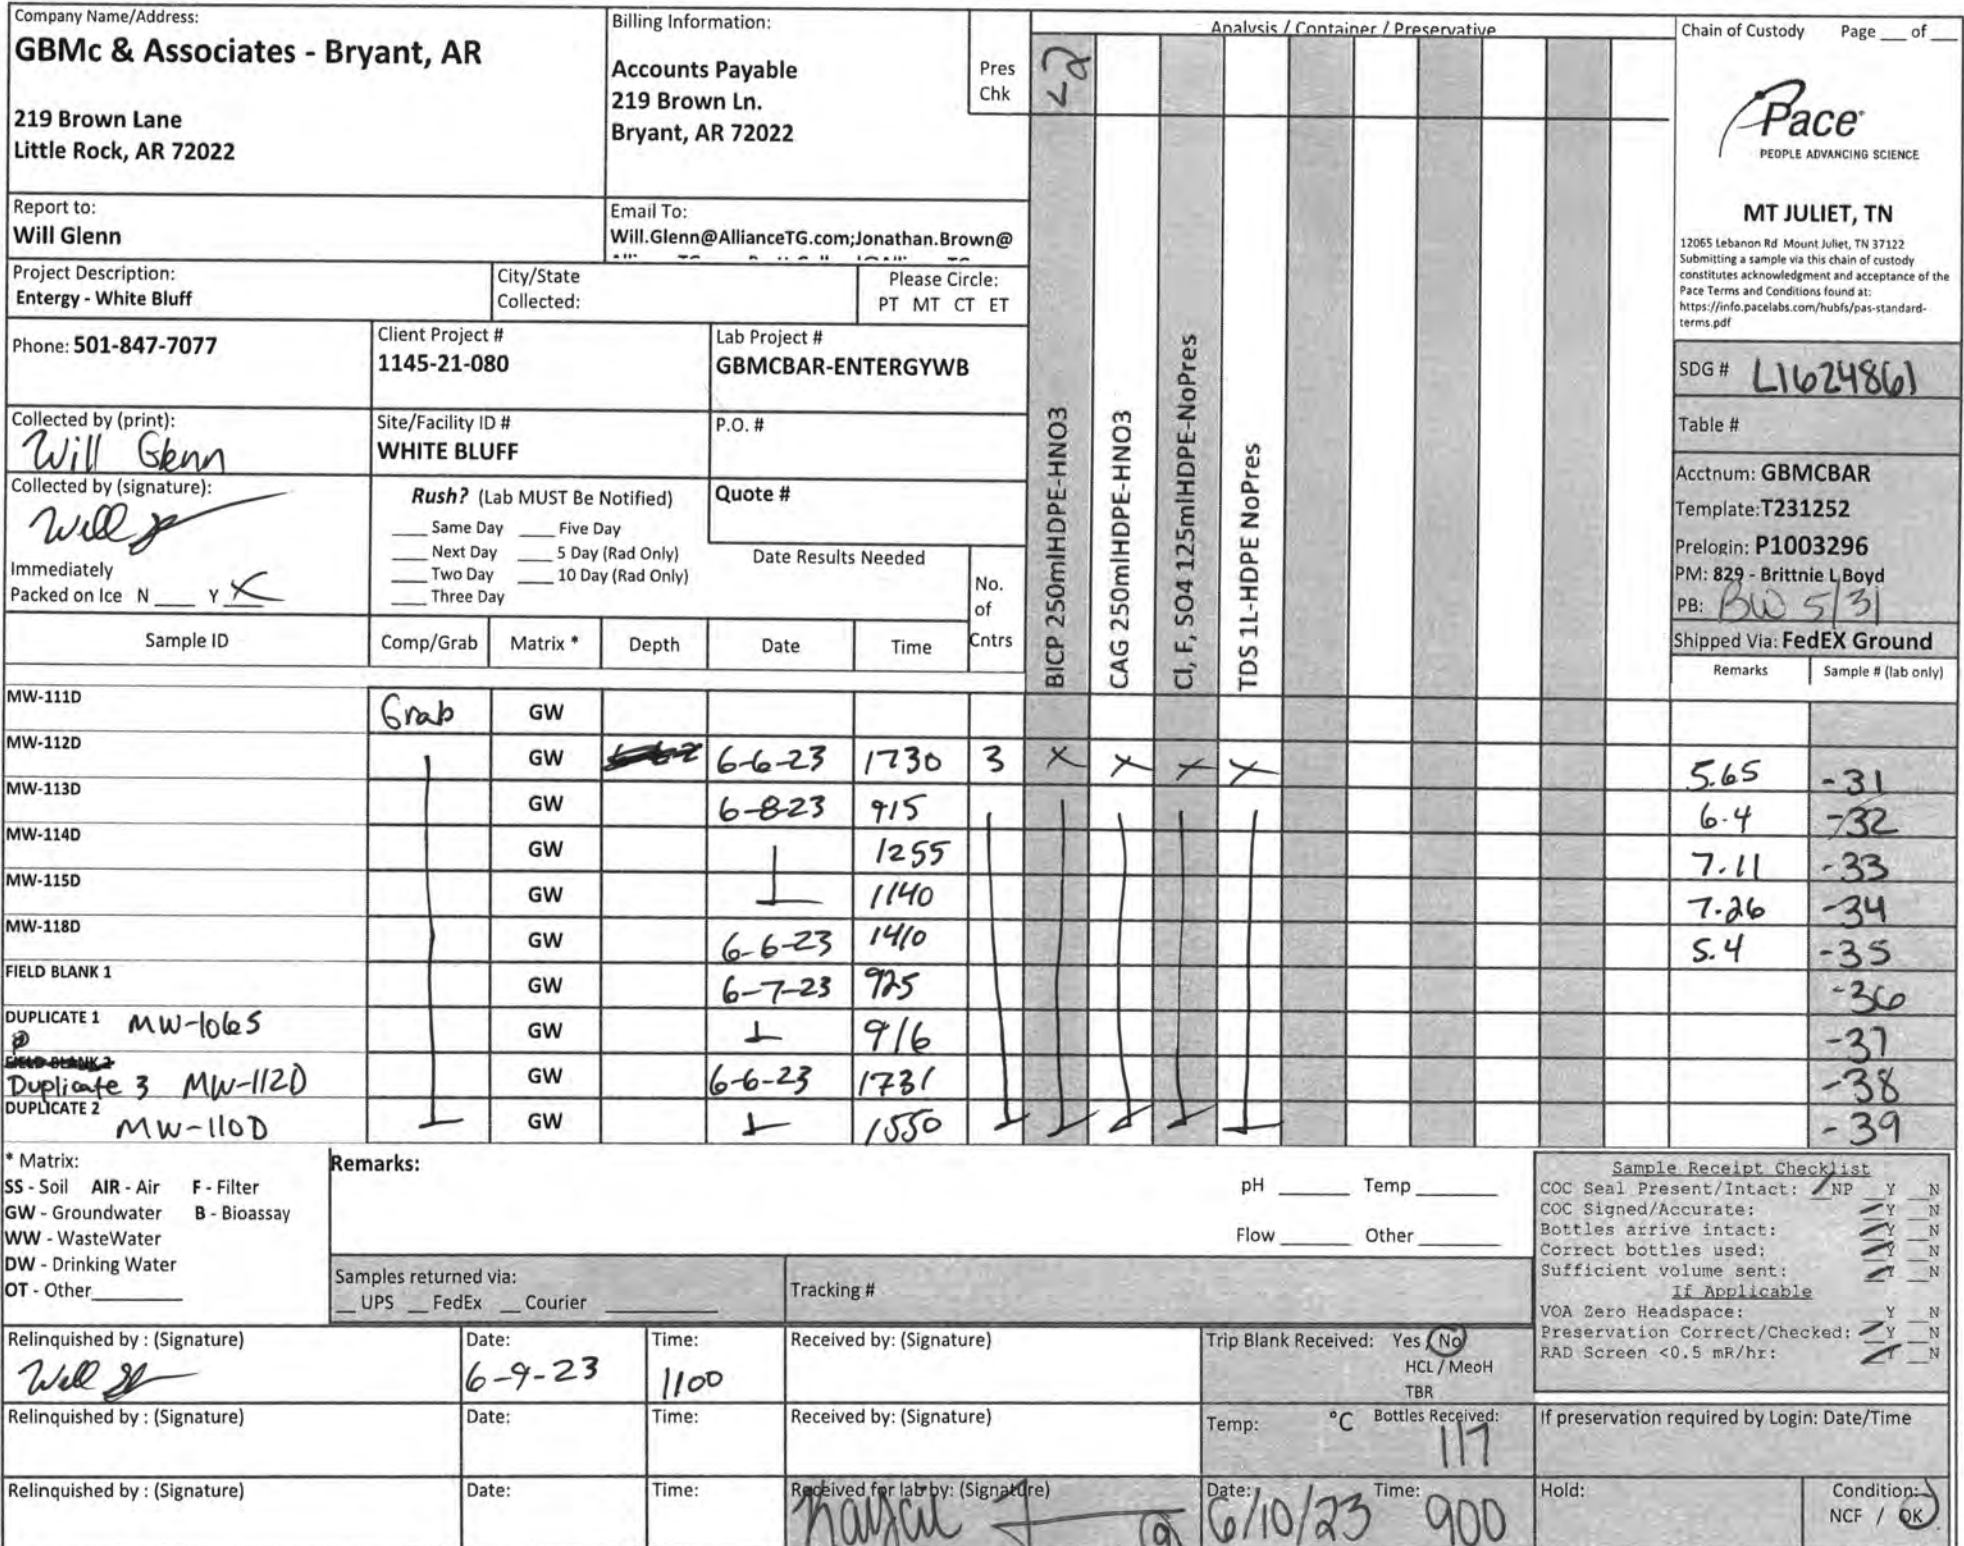 Company Name/Address:
GBMc & Associates - Bryant, AR
219 Brown Lane
Little Rock, AR 72022
Billing Information:
Accounts Payable
219 Brown Ln.
Bryant, AR 72022
Pres
Chk
<2
Analysis / Container / Preservative
Chain of Custody Page ___ of ___
Pace
PEOPLE ADVANCING SCIENCE
MT JULIET, TN
12065 Lebanon Rd Mount Juliet, TN 37122
Submitting a sample via this chain of custody
constitutes acknowledgment and acceptance of the
Pace Terms and Conditions found at:
https://info.pacelabs.com/hubfs/pas-standard-
terms.pdf
Report to:
Will Glenn
Email To:
Will.Glenn@AllianceTG.com;Jonathan.Brown@
Project Description:
Entergy - White Bluff
City/State
Collected:
Please Circle:
PT MT CT ET
Phone: 501-847-7077
Client Project #
1145-21-080
Lab Project #
GBMCBAR-ENTERGYWB
Collected by (print):
Will Glenn
Site/Facility ID #
WHITE BLUFF
P.O. #
Collected by (signature):
Rush? (Lab MUST Be Notified)
___ Same Day ___ Five Day
___ Next Day ___ 5 Day (Rad Only)
___ Two Day ___ 10 Day (Rad Only)
___ Three Day
Quote #
Date Results Needed
Immediately
Packed on Ice N ___ Y X
No.
of
Cntrs
BICP 250mlHDPE-HNO3
CAG 250mlHDPE-HNO3
Cl, F, SO4 125mlHDPE-NoPres
TDS 1L-HDPE NoPres
SDG # L1624861
Table #
Acctnum: GBMCBAR
Template:T231252
Prelogin: P1003296
PM: 829 - Brittnie L Boyd
PB: BW 5/31
Shipped Via: FedEX Ground
Sample ID Comp/Grab Matrix * Depth Date Time Remarks Sample # (lab only)
MW-111D Grab GW
MW-112D GW 6-6-23 1730 3 X X X X 5.65 -31
MW-113D GW 6-8-23 915 6.4 -32
MW-114D GW 1255 7.11 -33
MW-115D GW 1140 7.26 -34
MW-118D GW 6-6-23 1410 5.4 -35
FIELD BLANK 1 GW 6-7-23 925 -36
DUPLICATE 1 MW-106S GW 916 -37
FIELD BLANK 2
Duplicate 3 MW-112D GW 6-6-23 1731 -38
DUPLICATE 2 MW-110D GW 1550 -39
* Matrix:
SS - Soil AIR - Air F - Filter
GW - Groundwater B - Bioassay
WW - WasteWater
DW - Drinking Water
OT - Other___
Remarks:
pH ___ Temp ___
Flow ___ Other ___
Samples returned via:
__ UPS __ FedEx __ Courier ___
Tracking #
Sample Receipt Checklist
COC Seal Present/Intact: /NP _Y _N
COC Signed/Accurate: /Y _N
Bottles arrive intact: /Y _N
Correct bottles used: /Y _N
Sufficient volume sent: /Y _N
If Applicable
VOA Zero Headspace: _Y _N
Preservation Correct/Checked: /Y _N
RAD Screen <0.5 mR/hr: /Y _N
Relinquished by : (Signature) Date: 6-9-23 Time: 1100 Received by: (Signature)
Trip Blank Received: Yes / No
HCL / MeoH
TBR
Relinquished by : (Signature) Date: Time: Received by: (Signature)
Temp: °C Bottles Received: 117
If preservation required by Login: Date/Time
Relinquished by : (Signature) Date: Time: Received for lab by: (Signature)
Date: 6/10/23 Time: 900
Hold:
Condition:
NCF / OK